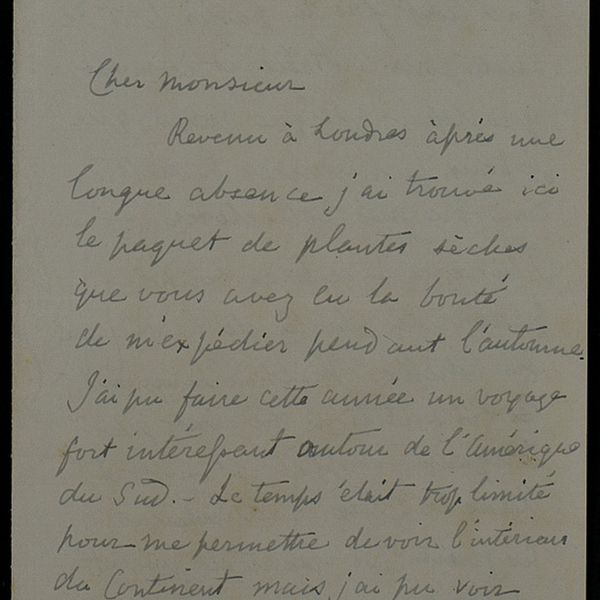 Cher Monsieur
Revenu à Londres àprés une
longue absence j'ai trouvé ici
le paquet de plantes sèches
que vous avez eu la bonté
de m'expédier pendant l'automne.
J'ai pu faire cette année un voyage
fort intéressant autour de l'Amérique
du Sud. – Le temps était trop limité
pour me permettre de voir l'intérieur
du Continent mais j'ai pu voir